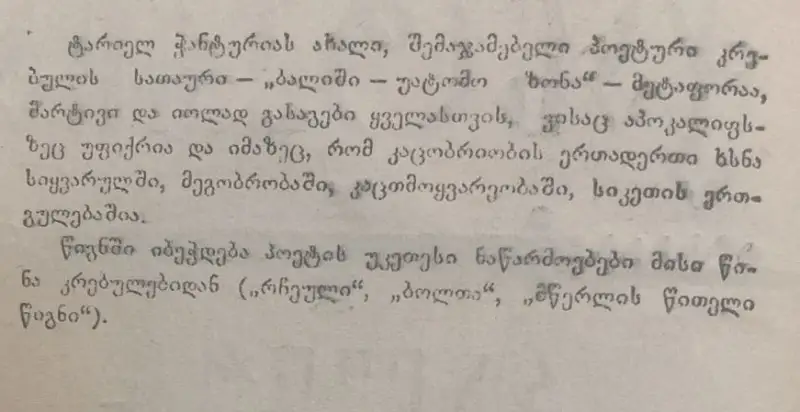 ტარიელ ჭანტურიას ახალი, შემაჯამებელი პოეტური კრე-
ბულის სათაური — „ბალიში — უატომო ზონა“ — მეტაფორაა,
მარტივი და იოლად გასაგები ყველასთვის, ვისაც აპოკალიფს-
ზეც უფიქრია და იმაზეც, რომ კაცობრიობის ერთადერთი ხსნა
სიყვარულში, მეგობრობაში, კაცთმოყვარეობაში, სიკეთის ერთ-
გულებაშია.
წიგნში იბეჭდება პოეტის უკეთესი ნაწარმოებები მისი წი-
ნა კრებულებიდან („რჩეული“, „ბოლთა“, „მწერლის წითელი
წიგნი“).